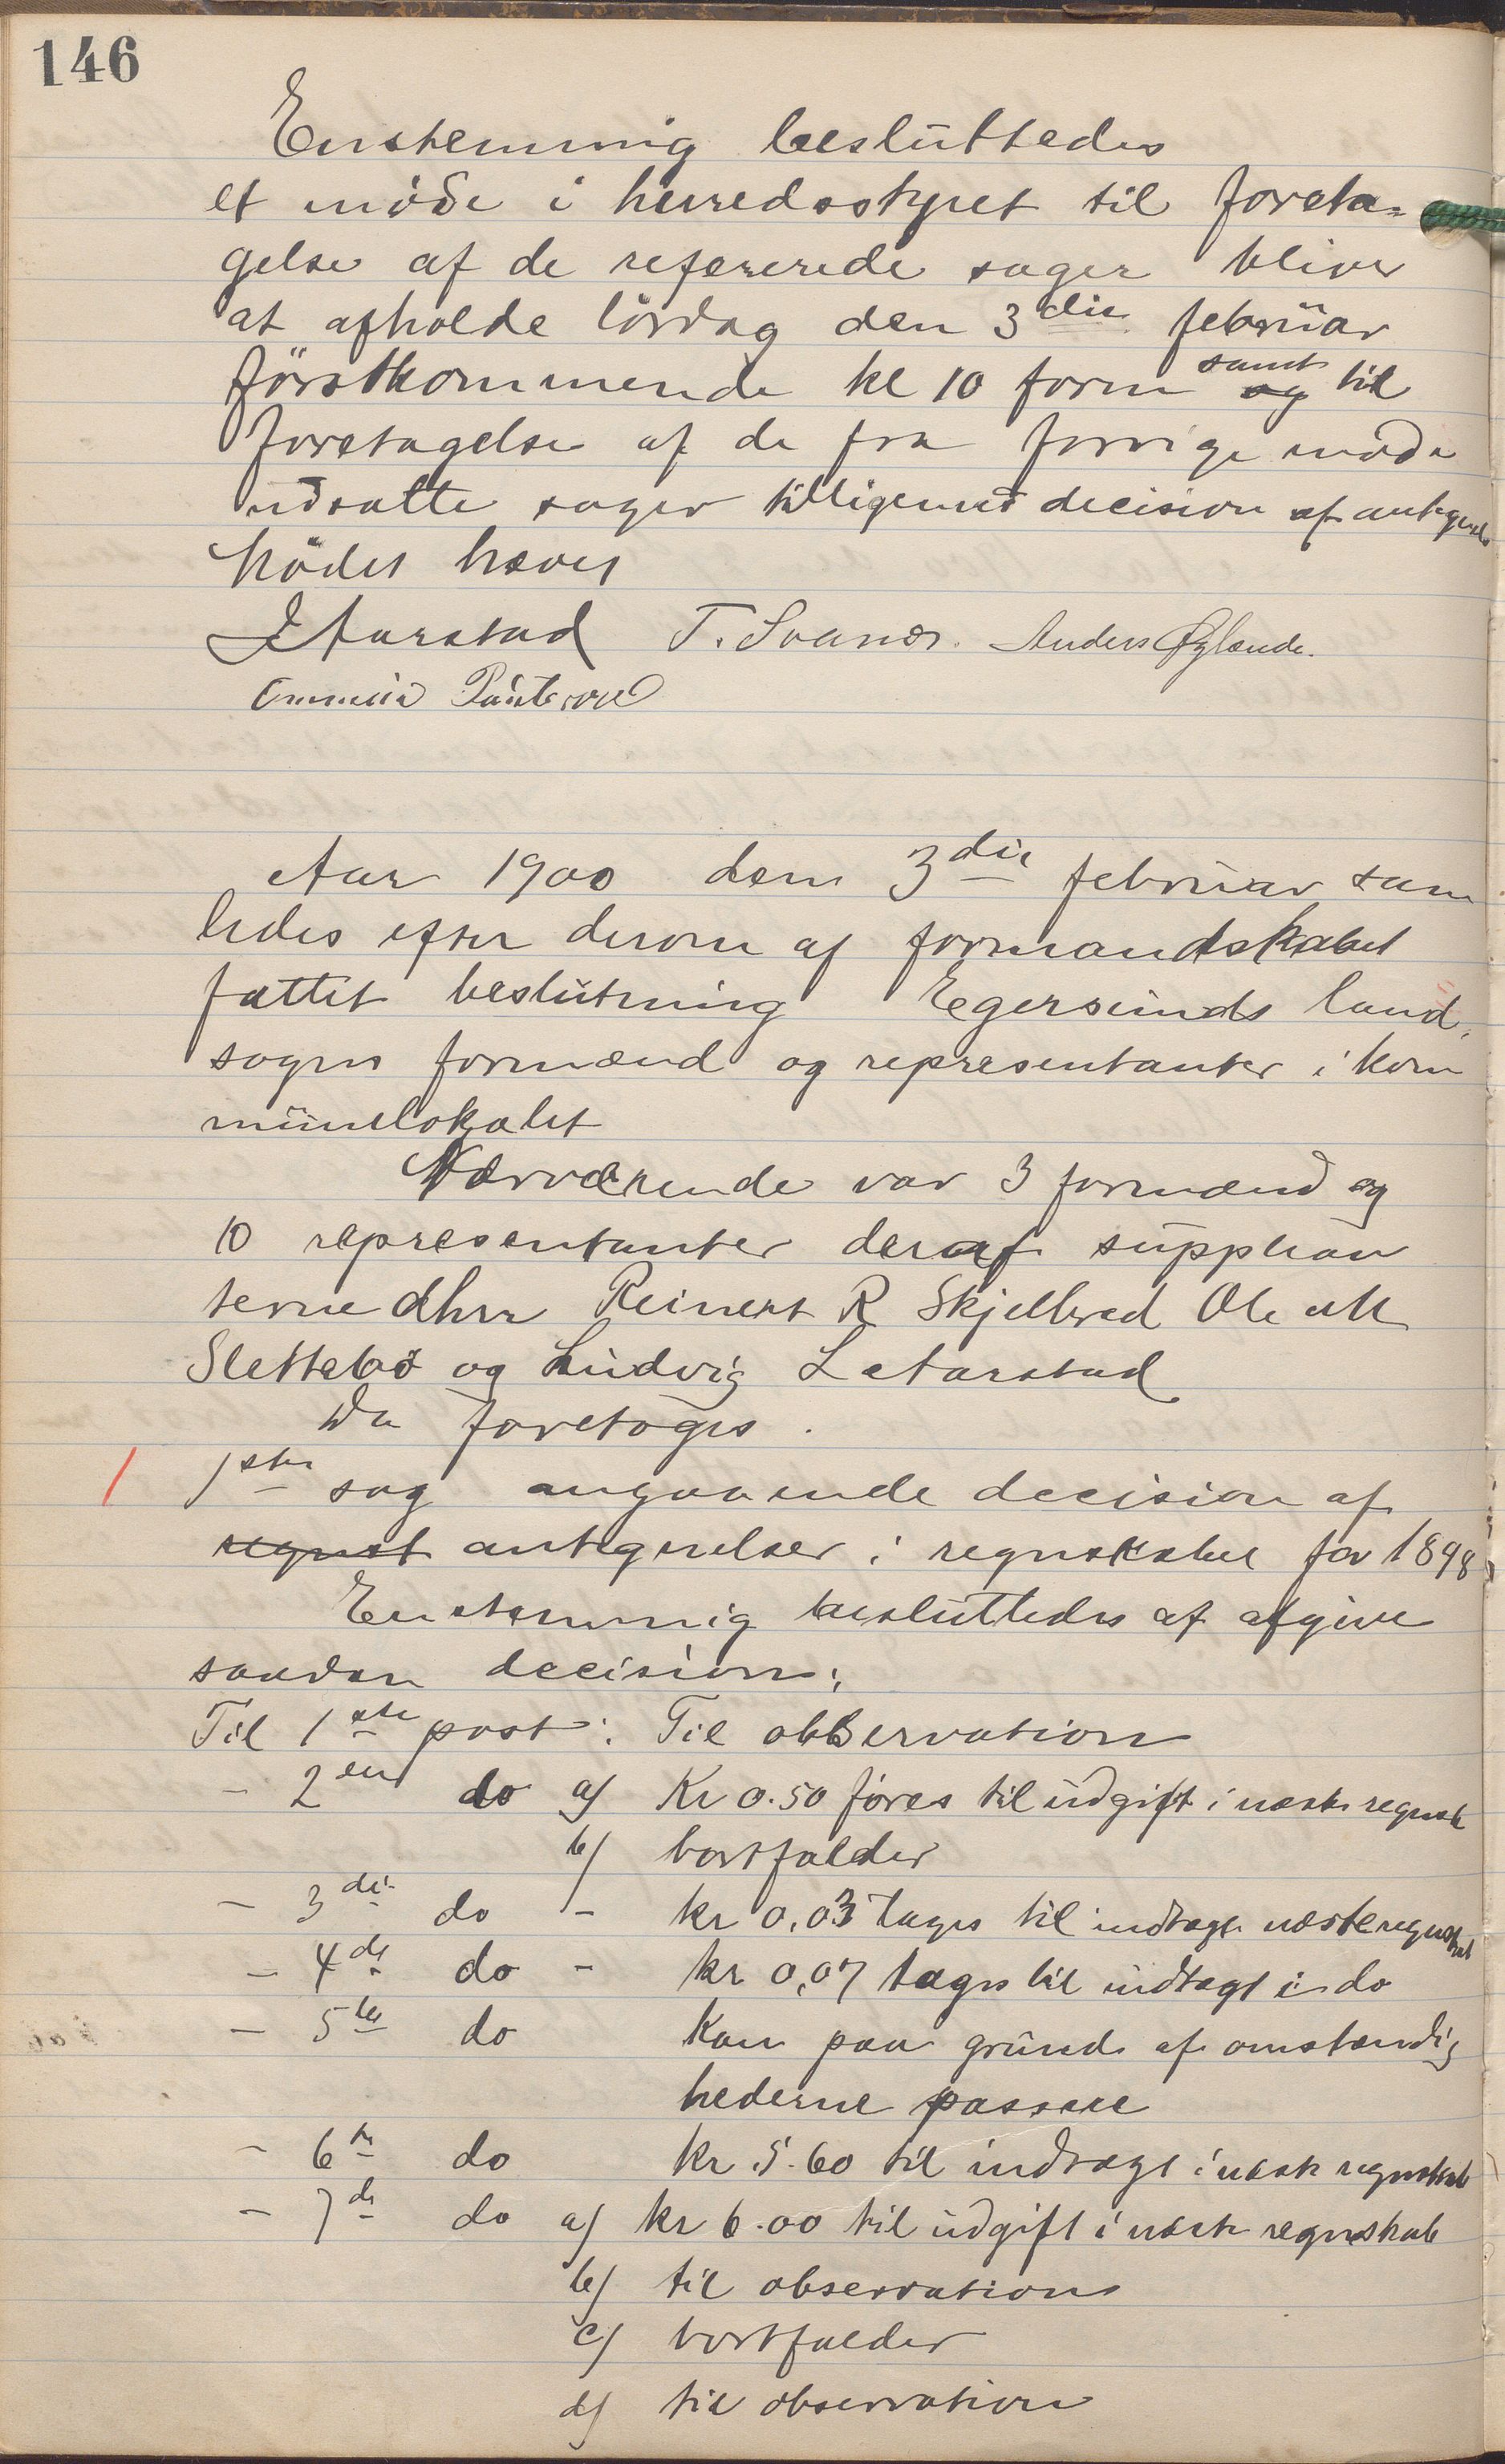 146
Enstemmig besluttedes
et møde i herredsstyret til foreta=
gelse af de refererede sager bliver
at afholde lørdag den 3die februar
förstkommende kl 10 form og samt til
foretagelse af de fra forrige møde
udsatte sager tilligemed decision af antegnels
Mödet hævet
J Aarstad T. Svanes. Anders Øglænde.
Aar 1900 den 3die februar sam
ledes efter derom af formandskabet
fattet beslutning Egersunds land,
sogns formænd og representanter i kom
munelokalet
Nærværende var 3 formænd og
10 representanter deraf supplean
terne dhrr Reinert R Skjelbred Ole M
Slettebø og Ludvig L Aarstad
Da foretoges.
1 1ste sag angaaende decision af
regnst antegnelser i regnskabet for 1898
Enstemmig besluttedes at afgive
saadan decision:
Til 1ste post: Til observation
- 2en do a) Kr 0.50 føres til udgift i næste regnsk
b) bortfalder
- 3di do - kr 0,03 tages til indtægt næste regnskab
- 4de do - kr 0,07 tages til indtægt i do
- 5te do Kan paa grund af omstændig
hederne passere
- 6te do kr 5.60 til indtægt i næste regnskab
- 7de do a) kr 6.00 til udgift i næste regnskab
b) til observation
c) bortfalder
d) til observation